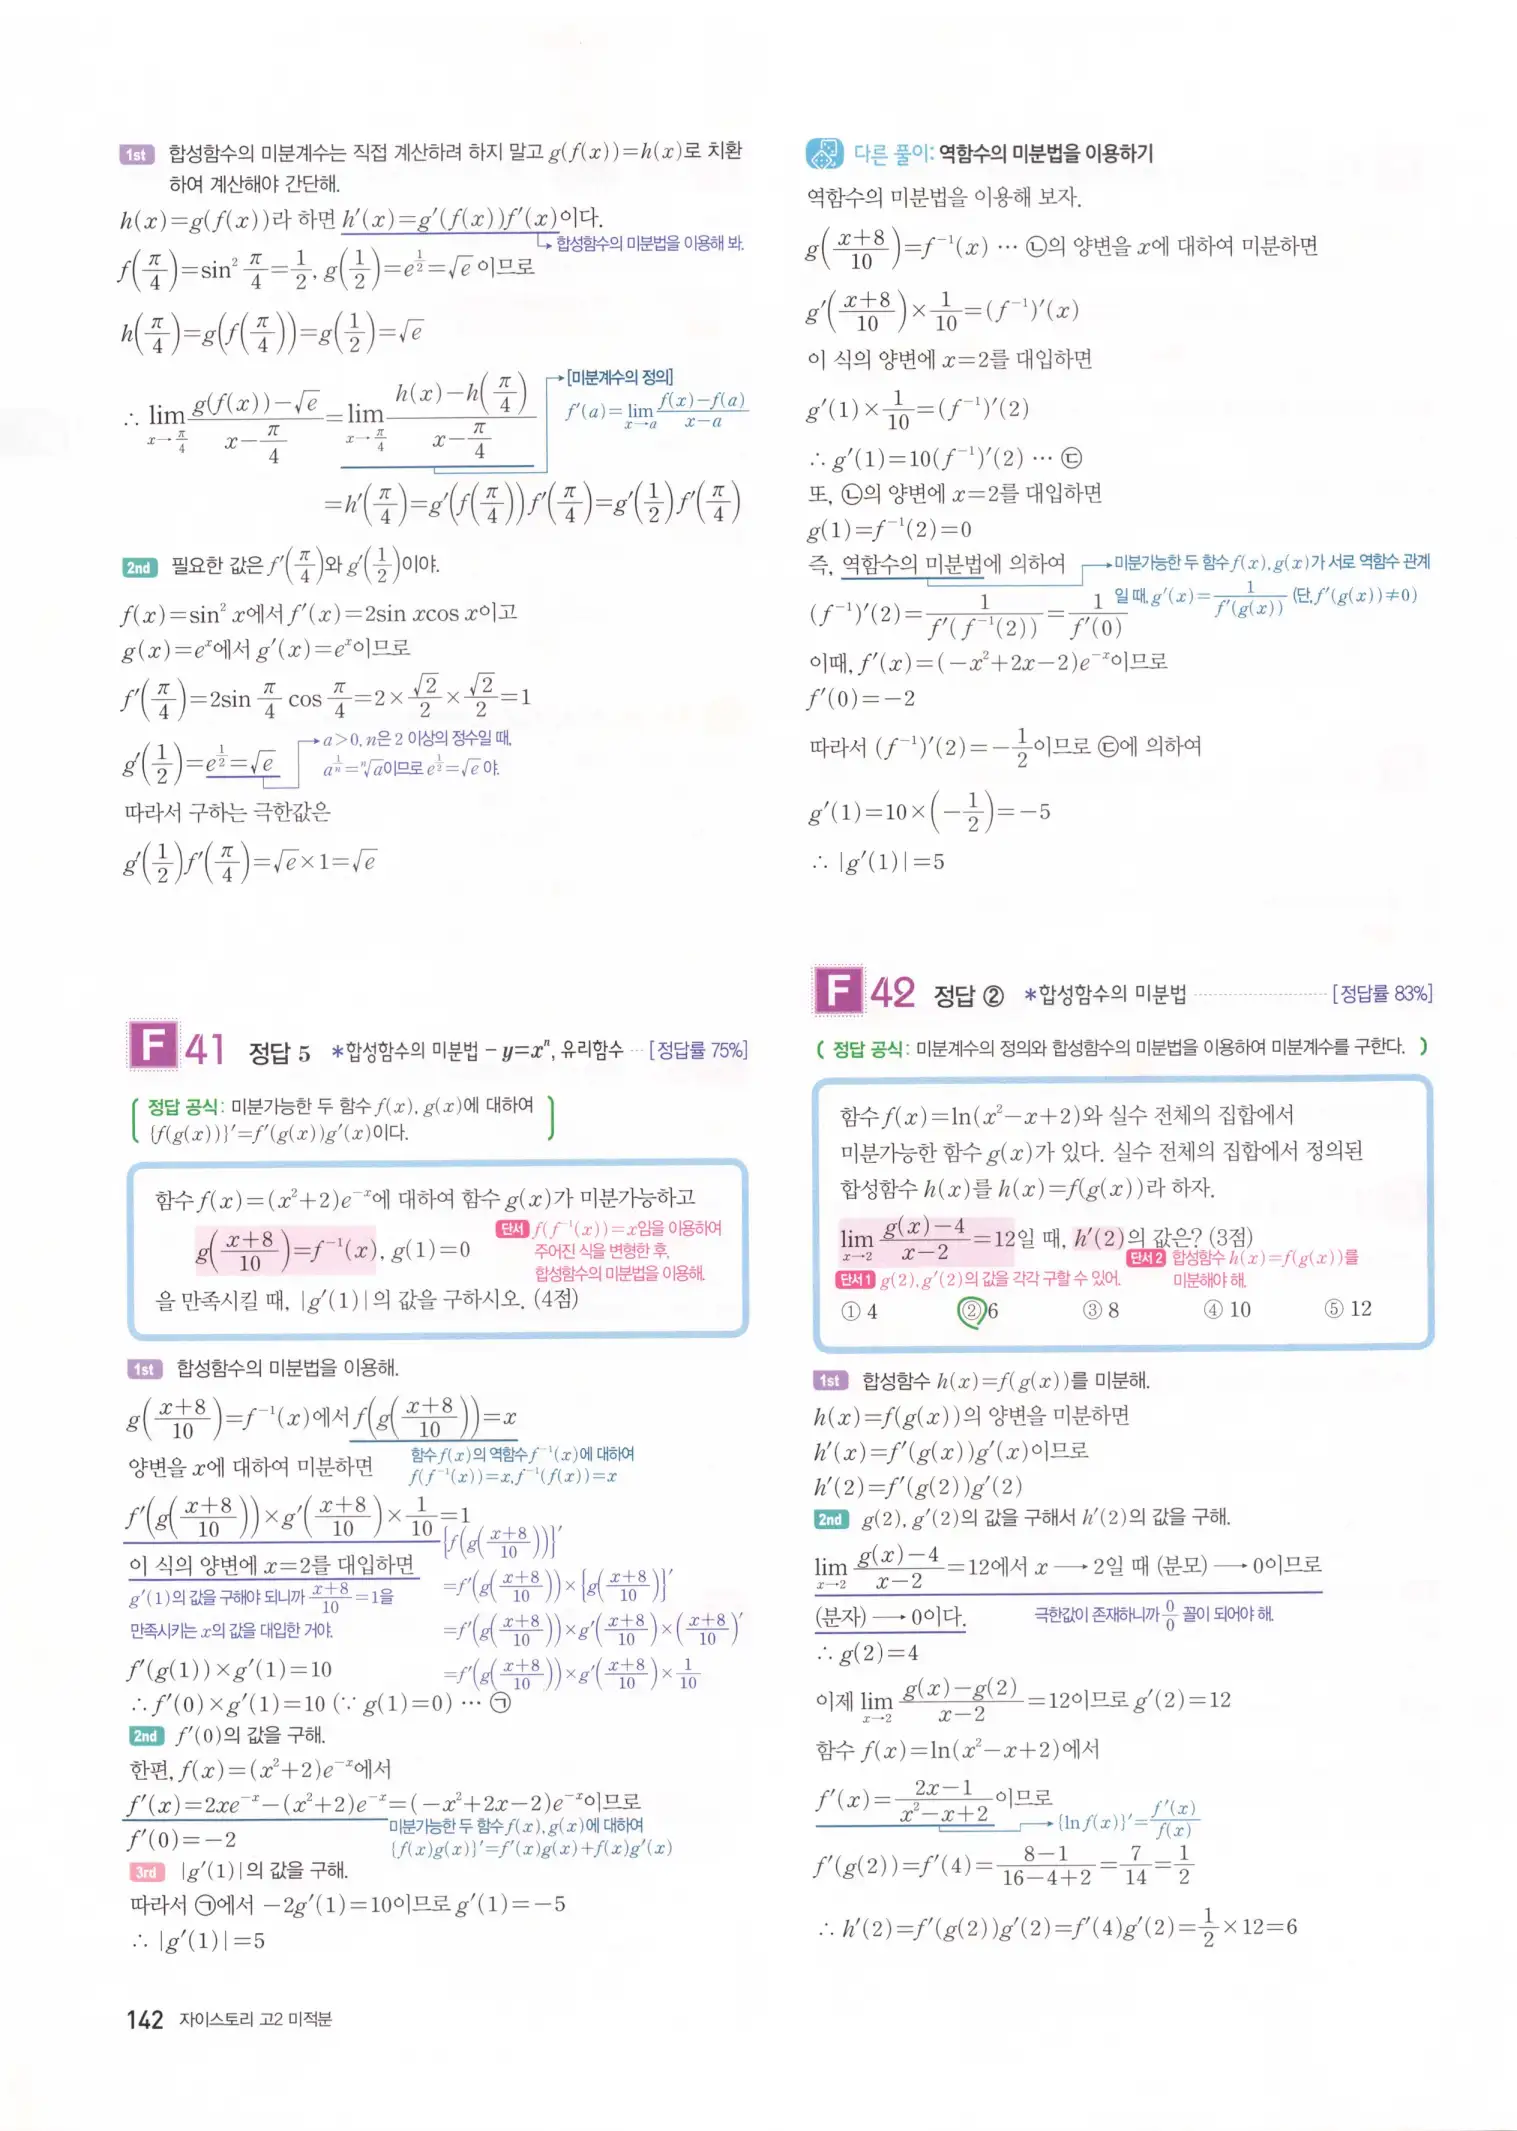 1st 합성함수의 미분계수는 직접 계산하려 하지 말고 g(f(x))=h(x)로 치환
하여 계산해야 간단해.
h(x)=g(f(x))라 하면 h′(x)=g′(f(x))f′(x)이다.
합성함수의 미분법을 이용해 봐.
f(π/4)=sin² π/4=1/2, g(1/2)=e^(1/2)=√e이므로
h(π/4)=g(f(π/4))=g(1/2)=√e
[미분계수의 정의]
f′(a)=lim_{x→a} (f(x)-f(a))/(x-a)
∴ lim_{x→π/4} (g(f(x))-√e)/(x-π/4)=lim_{x→π/4} (h(x)-h(π/4))/(x-π/4)
=h′(π/4)=g′(f(π/4))f′(π/4)=g′(1/2)f′(π/4)
2nd 필요한 값은 f′(π/4)와 g′(1/2)이야.
f(x)=sin² x에서 f′(x)=2sin xcos x이고
g(x)=e^x에서 g′(x)=e^x이므로
f′(π/4)=2sin π/4 cos π/4=2×√2/2×√2/2=1
g′(1/2)=e^(1/2)=√e
a>0, n은 2 이상의 정수일 때,
a^(1/n)=ⁿ√a이므로 e^(1/2)=√e야.
따라서 구하는 극한값은
g′(1/2)f′(π/4)=√e×1=√e
F 41 정답 5 *합성함수의 미분법 - y=xⁿ, 유리함수 ··· [정답률 75%]
( 정답 공식: 미분가능한 두 함수 f(x), g(x)에 대하여
{f(g(x))}′=f′(g(x))g′(x)이다. )
함수 f(x)=(x²+2)e^(-x)에 대하여 함수 g(x)가 미분가능하고
g((x+8)/10)=f⁻¹(x), g(1)=0
단서 f(f⁻¹(x))=x임을 이용하여
주어진 식을 변형한 후,
합성함수의 미분법을 이용해.
을 만족시킬 때, |g′(1)|의 값을 구하시오. (4점)
1st 합성함수의 미분법을 이용해.
g((x+8)/10)=f⁻¹(x)에서 f(g((x+8)/10))=x
함수 f(x)의 역함수 f⁻¹(x)에 대하여
f(f⁻¹(x))=x, f⁻¹(f(x))=x
양변을 x에 대하여 미분하면
f′(g((x+8)/10))×g′((x+8)/10)×1/10=1
{f(g((x+8)/10))}′
=f′(g((x+8)/10))×{g((x+8)/10)}′
=f′(g((x+8)/10))×g′((x+8)/10)×((x+8)/10)′
=f′(g((x+8)/10))×g′((x+8)/10)×1/10
이 식의 양변에 x=2를 대입하면
g′(1)의 값을 구해야 되니까 (x+8)/10=1을
만족시키는 x의 값을 대입한 거야.
f′(g(1))×g′(1)=10
∴ f′(0)×g′(1)=10 (∵ g(1)=0) ··· ㉠
2nd f′(0)의 값을 구해.
한편, f(x)=(x²+2)e^(-x)에서
f′(x)=2xe^(-x)-(x²+2)e^(-x)=(-x²+2x-2)e^(-x)이므로
미분가능한 두 함수 f(x), g(x)에 대하여
{f(x)g(x)}′=f′(x)g(x)+f(x)g′(x)
f′(0)=-2
3rd |g′(1)|의 값을 구해.
따라서 ㉠에서 -2g′(1)=10이므로 g′(1)=-5
∴ |g′(1)|=5
142 자이스토리 고2 미적분
다른 풀이: 역함수의 미분법을 이용하기
역함수의 미분법을 이용해 보자.
g((x+8)/10)=f⁻¹(x) ··· ㉡의 양변을 x에 대하여 미분하면
g′((x+8)/10)×1/10=(f⁻¹)′(x)
이 식의 양변에 x=2를 대입하면
g′(1)×1/10=(f⁻¹)′(2)
∴ g′(1)=10(f⁻¹)′(2) ··· ㉢
또, ㉡의 양변에 x=2를 대입하면
g(1)=f⁻¹(2)=0
즉, 역함수의 미분법에 의하여
미분가능한 두 함수 f(x), g(x)가 서로 역함수 관계
일 때, g′(x)=1/f′(g(x)) (단, f′(g(x))≠0)
(f⁻¹)′(2)=1/f′(f⁻¹(2))=1/f′(0)
이때, f′(x)=(-x²+2x-2)e^(-x)이므로
f′(0)=-2
따라서 (f⁻¹)′(2)=-1/2이므로 ㉢에 의하여
g′(1)=10×(-1/2)=-5
∴ |g′(1)|=5
F 42 정답 ② *합성함수의 미분법 ··· [정답률 83%]
( 정답 공식: 미분계수의 정의와 합성함수의 미분법을 이용하여 미분계수를 구한다. )
함수 f(x)=ln(x²-x+2)와 실수 전체의 집합에서
미분가능한 함수 g(x)가 있다. 실수 전체의 집합에서 정의된
합성함수 h(x)를 h(x)=f(g(x))라 하자.
lim_{x→2} (g(x)-4)/(x-2)=12일 때, h′(2)의 값은? (3점)
단서1 g(2), g′(2)의 값을 각각 구할 수 있어.
단서2 합성함수 h(x)=f(g(x))를
미분해야 해.
① 4 ② 6 ③ 8 ④ 10 ⑤ 12
1st 합성함수 h(x)=f(g(x))를 미분해.
h(x)=f(g(x))의 양변을 미분하면
h′(x)=f′(g(x))g′(x)이므로
h′(2)=f′(g(2))g′(2)
2nd g(2), g′(2)의 값을 구해서 h′(2)의 값을 구해.
lim_{x→2} (g(x)-4)/(x-2)=12에서 x → 2일 때 (분모) → 0이므로
(분자) → 0이다.
극한값이 존재하니까 0/0 꼴이 되어야 해.
∴ g(2)=4
이제 lim_{x→2} (g(x)-g(2))/(x-2)=12이므로 g′(2)=12
함수 f(x)=ln(x²-x+2)에서
f′(x)=(2x-1)/(x²-x+2)이므로
{ln f(x)}′=f′(x)/f(x)
f′(g(2))=f′(4)=(8-1)/(16-4+2)=7/14=1/2
∴ h′(2)=f′(g(2))g′(2)=f′(4)g′(2)=1/2×12=6